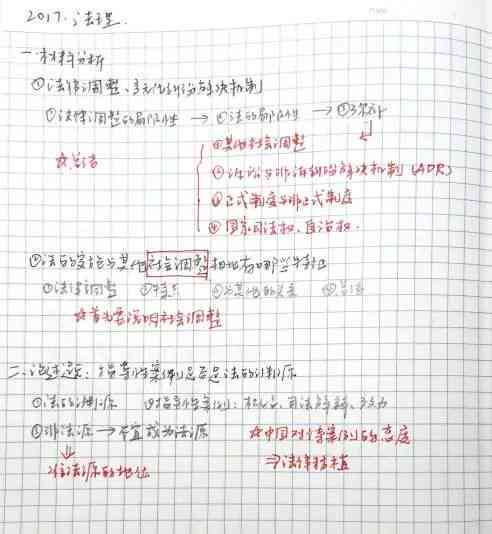 2017.法理.
一.材料分析
①法律调整、多元化纠纷解决机制
①法律调整的局限性 → ②法的局限性 → ③弥补
☆总结
①其他社会调整
②诉讼与非诉纠纷解决机制 (ADR)
③正式制度与非正式制度
④国家司法权、自治权.
②法的实施与其他社会调整相比有哪些特征
①法律调整 ②特点 ③与其他的关系 ④总结
☆首先要说明社会调整
二、论述题：指导性案例是否是法的渊源
①法的渊源 ②指导性案例：司法解释、
③非法源 → 不宜成为法源
↓
准法源的地位
☆中国对待案例的态度
⇒法律移植